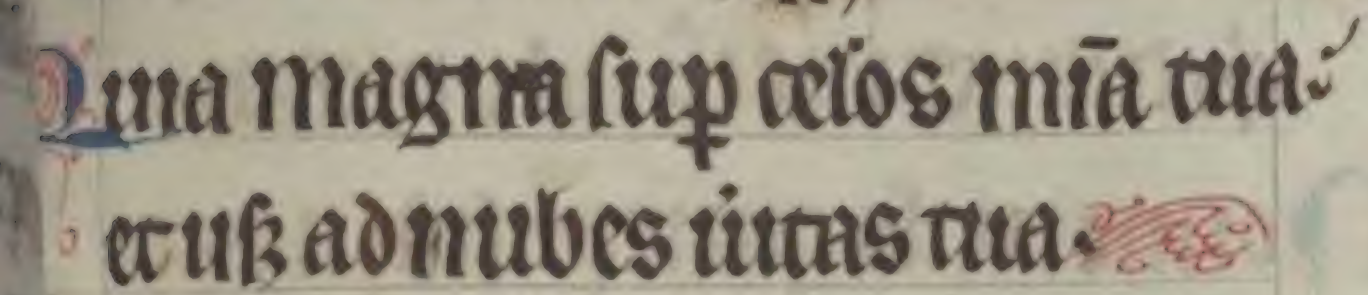 Quia magna sup̱ celos mīa tua⁏
et usꝫ ad nubes u̇itas tua.